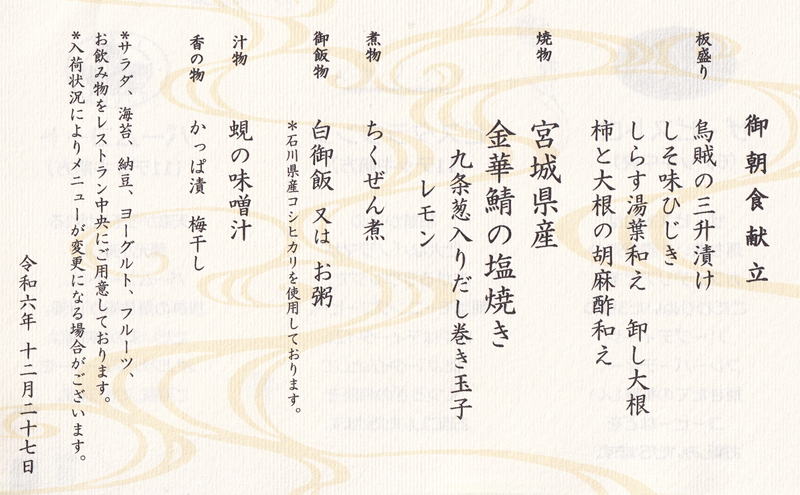 御朝食献立
板盛り
烏賊の三升漬け
しそ味ひじき
しらす湯葉和え　卸し大根
柿と大根の胡麻酢和え
焼物
宮城県産
金華鯖の塩焼き
九条葱入りだし巻き玉子
レモン
煮物
ちくぜん煮
御飯物
白御飯　又は　お粥
*石川県産コシヒカリを使用しております。
汁物
蜆の味噌汁
香の物
かっぱ漬　梅干し
*サラダ、海苔、納豆、ヨーグルト、フルーツ、
お飲み物をレストラン中央にご用意しております。
*入荷状況によりメニューが変更になる場合がございます。
令和六年　十二月二十七日